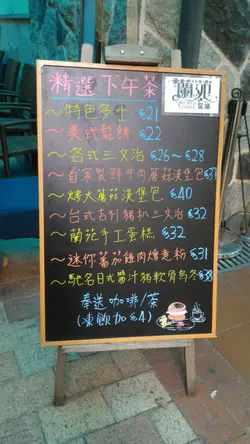 精選下午茶
蘭苑
饎館
～特色多士 $21
～美式鬆餅 $22
～各式三文治 $26～$28
～自家製鮮牛肉蘑菇漢堡包 $37
～烤大蘑菇漢堡包 $40
～台式吉列豬扒三文治 $32
～蘭苑手工蛋糕 $32
～迷你蕃茄雞肉燴意粉 $31
～馳名日式醬汁豬軟骨烏冬 $38
奉送咖啡/茶
(凍飲加$4)